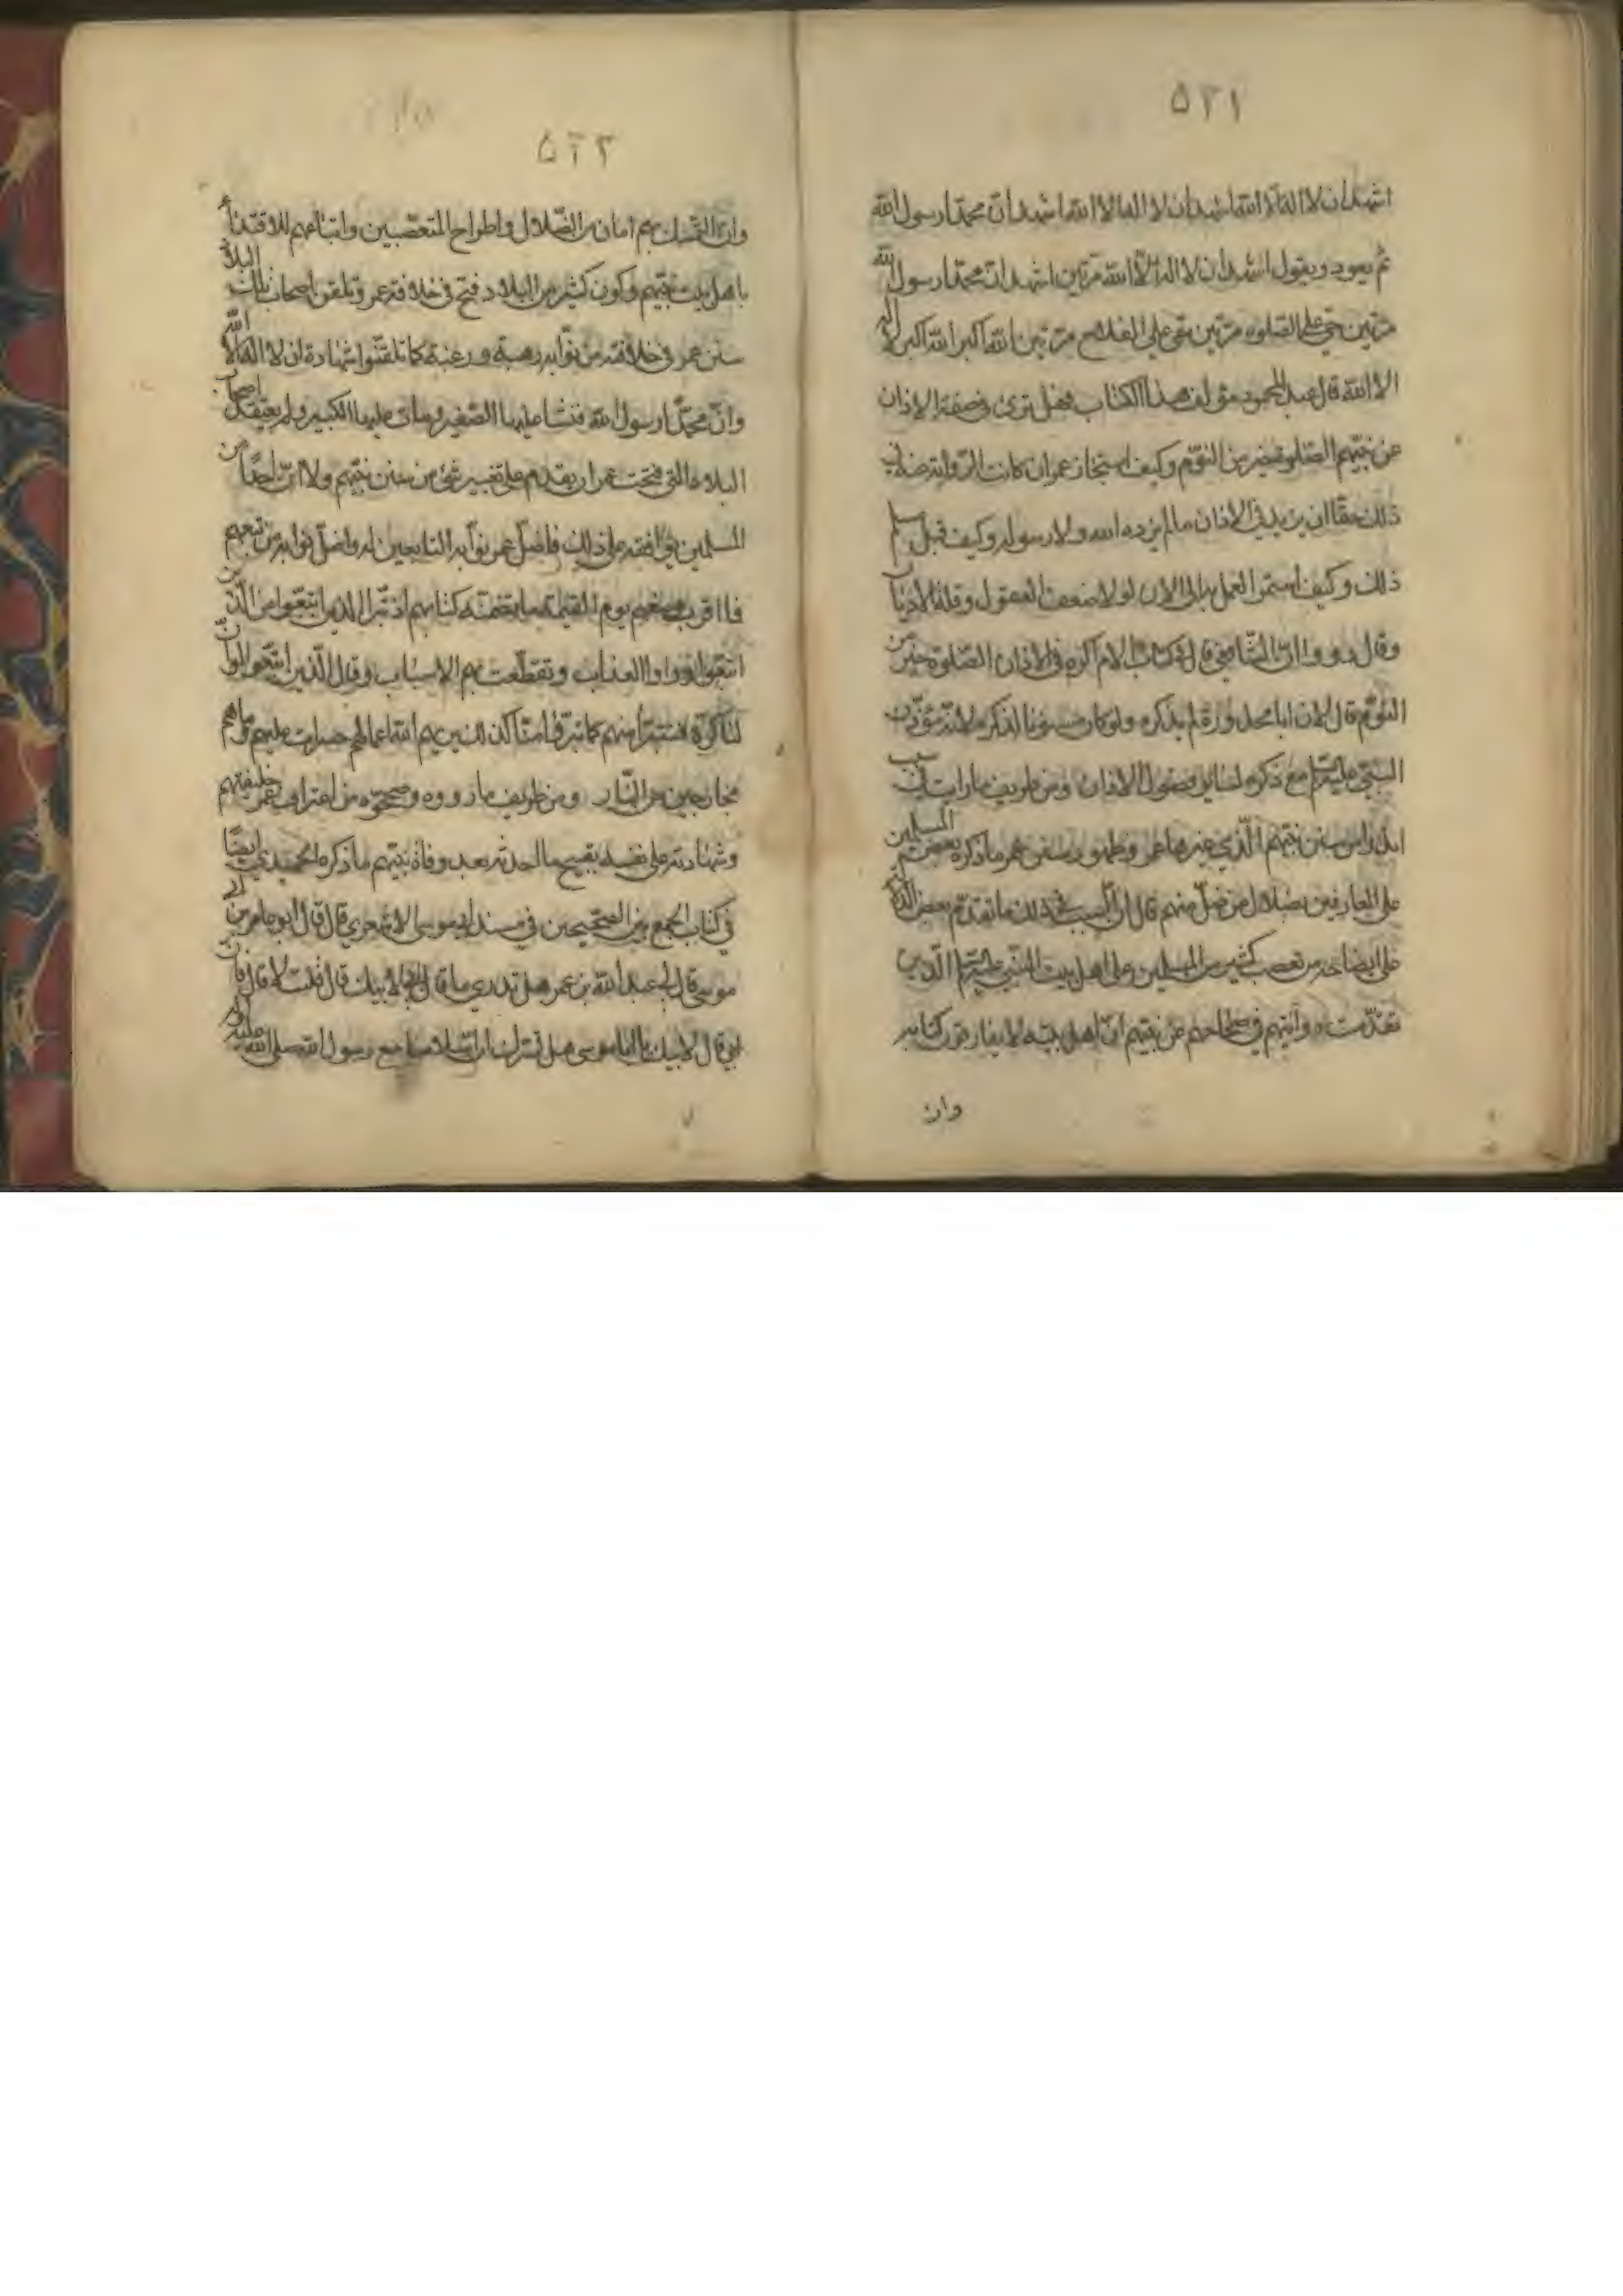 ۵۲۱
اشهد ان لا اله الا الله اشهد ان لا اله الا الله اشهد ان محمدا رسول الله
ثم يعود ويقول اشهد ان لا اله الا الله مرتين اشهد ان محمدا رسول الله
مرتين حي على الصلوة مرتين حي على الفلاح مرتين الله اكبر الله اكبر لا اله
الا الله قال عبد المحمود مؤلف هذا الكتاب فهل ترى في صفة الاذان
عن نبيهم الصلوة خير من النوم وكيف استجاز عمر ان كانت الرواية عنه في
ذلك حقا ان يزيد في الاذان ما لم يزده الله ولا رسوله وكيف قبل
ذلك وكيف استمر العمل بها الى الان لولا ضعف العقول وقلة الاديان
وقال رووا ان الشافعي قال في كتاب الام اكره في الاذان الصلوة خير من
النوم قال لان ابا محذورة لم يذكره ولو كان مسنونا لذكره لانه مؤذن
النبي مع ذكره لسائر فصول الاذان ومن طريف ما رايت في سبب
من سنن نبيهم الذي غيرها عمر وظهور سنن عمر ما ذكره بعض المسلمين
على العارفين بضلال من ضل منهم قال ان السبب في ذلك ما تقدم بعض
على ايضاحه من تعصب كثير من المسلمين على اهل بيت النبي الذين
تقدمت في صحاحهم عن نبيهم ان اهل بيته لا يفارقون كتاب ربه
وان
۵۲۲
وان التمسك بهم امان من الضلال واطراح المتعصبين واتباعهم للاقتداء
باهل بيت نبيهم وكون كثير من البلاد فتح في خلافة عمر وتلقن اصحاب تلك البلاد
سنن عمر في خلافته من نوابه رهبة ورغبة كما تلقنوا شهادة ان لا اله الا الله
وان محمدا رسول الله فنشا عليها الصغير ومات عليها الكبير ولم يعتقد اصحاب
البلاد التي فتحت عمر ان يقدم على تغيير شئ من سنن نبيهم ولا ان احدا من
المسلمين يوافقه على ذلك فاضل عمر نوابه التابعين له واضل نوابه من تبعهم
فما اقرب وصفهم يوم القيمة بما تضمنه كتابهم اذ تبرا الذين اتبعوا من الذين
اتبعوا وراوا العذاب وتقطعت بهم الاسباب وقال الذين اتبعوا لو ان
لنا كرة فنتبرا منهم كما تبرؤا منا كذلك يريهم الله اعمالهم حسرات عليهم وما هم
بخارجين من النار ومن طريف ما رووه وصححوه من اعتراف عمر خليفتهم
وشهادته على نفسه بقبيح ما احدثه بعد وفاة نبيهم ما ذكره الحميدي ايضا
في كتاب الجمع بين الصحيحين في مسند ابي موسى الاشعري قال قال ابو عامر بن ابي
موسى قال لي عبد الله بن عمر هل تدري ما قال ابي لابيك قال قلت لا قال فان
ابي قال لابيك يا ابا موسى هل تسرك ان اسلامنا مع رسول الله صلى الله عليه واله